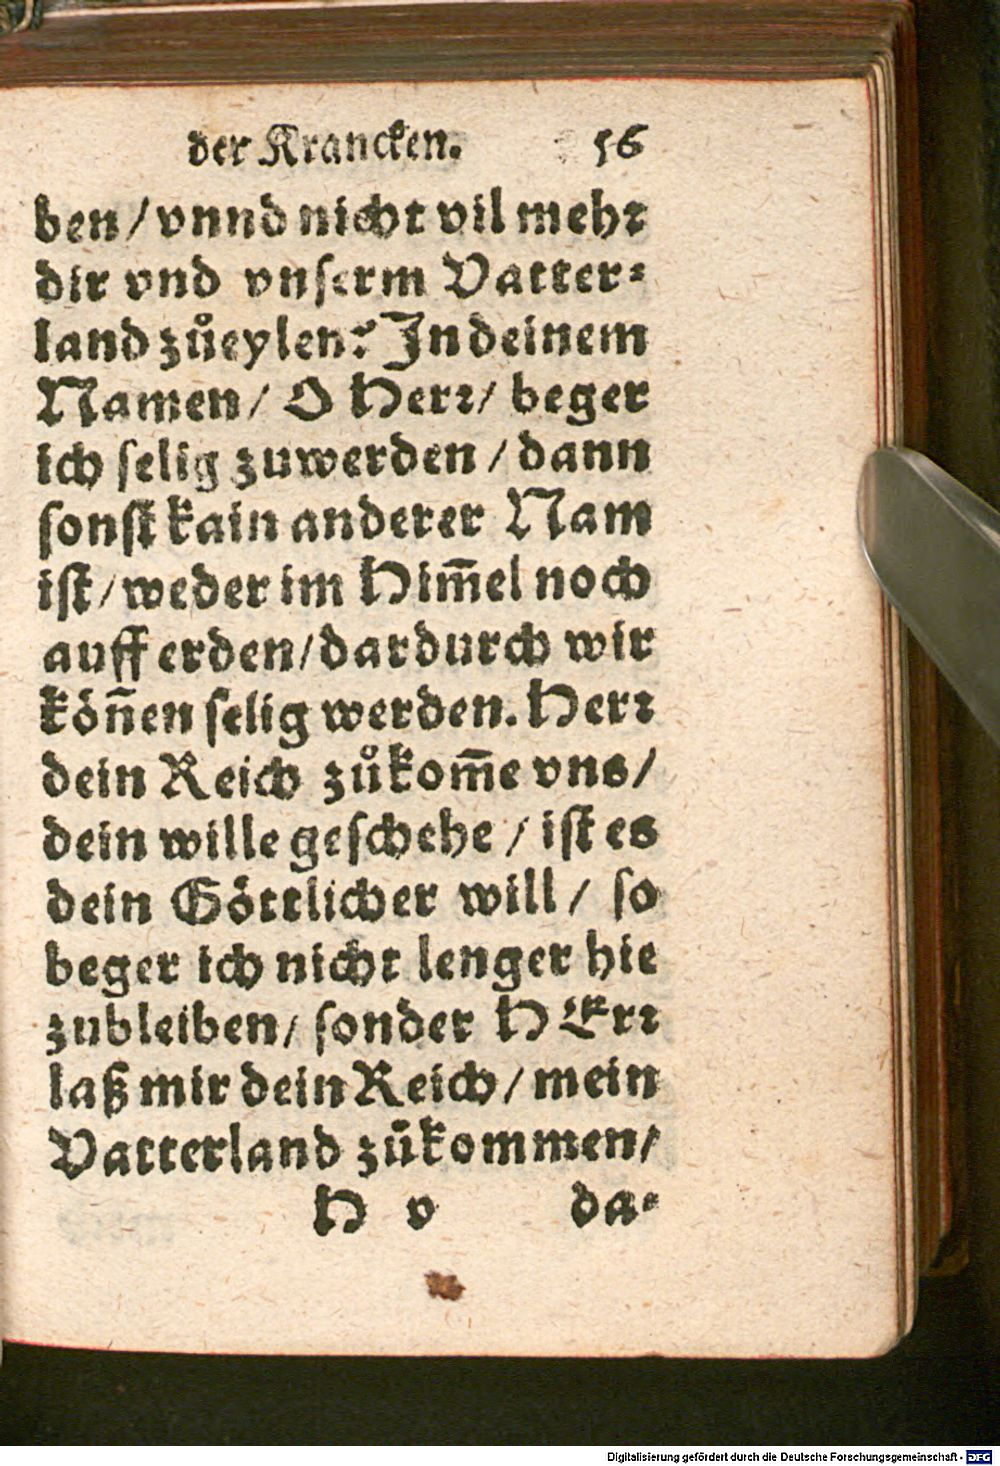 der Krancken. 56
ben / vnnd nicht vil mehr
dir vnd vnserm Vatter⸗
land zůeylen? In deinem
Namen / O Herr / beger
ich selig zuwerden / dann
sonst kain anderer Nam
ist / weder im Him̅el noch
auff erden / dardurch wir
kön̅en selig werden. Herr
dein Reich zůkom̅e vns /
dein wille geschehe / ist es
dein Göttlicher will / so
beger ich nicht lenger hie
zubleiben / sonder HErr
laß mir dein Reich / mein
Vatterland zůkommen /
H v da⸗
Digitalisierung gefördert durch die Deutsche Forschungsgemeinschaft - DFG